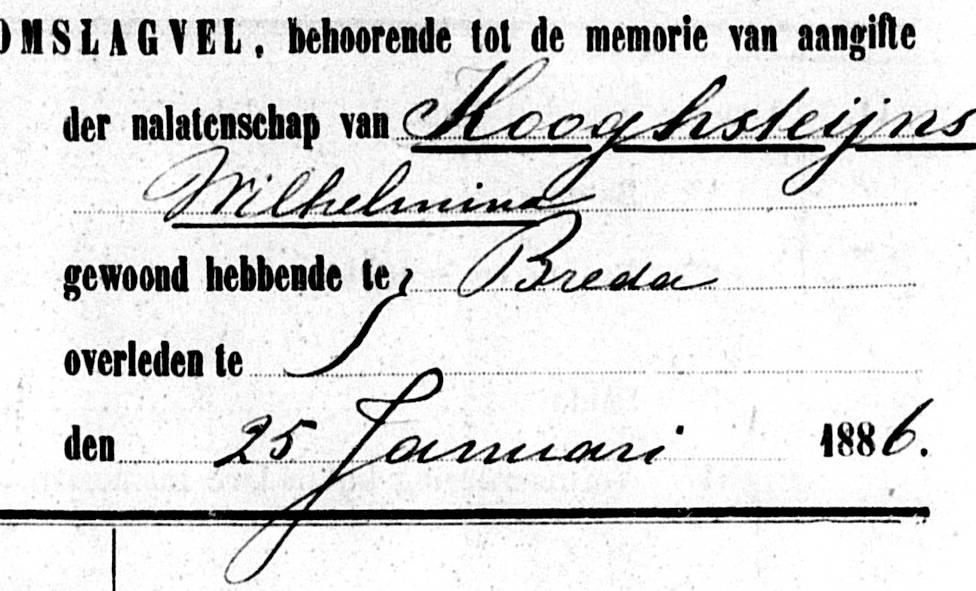 OMSLAGVEL, behoorende tot de memorie van aangifte
der nalatenschap van Hooghsteijns
Wilhelmina
gewoond hebbende te Breda
overleden te
den 25 Januari 1886.